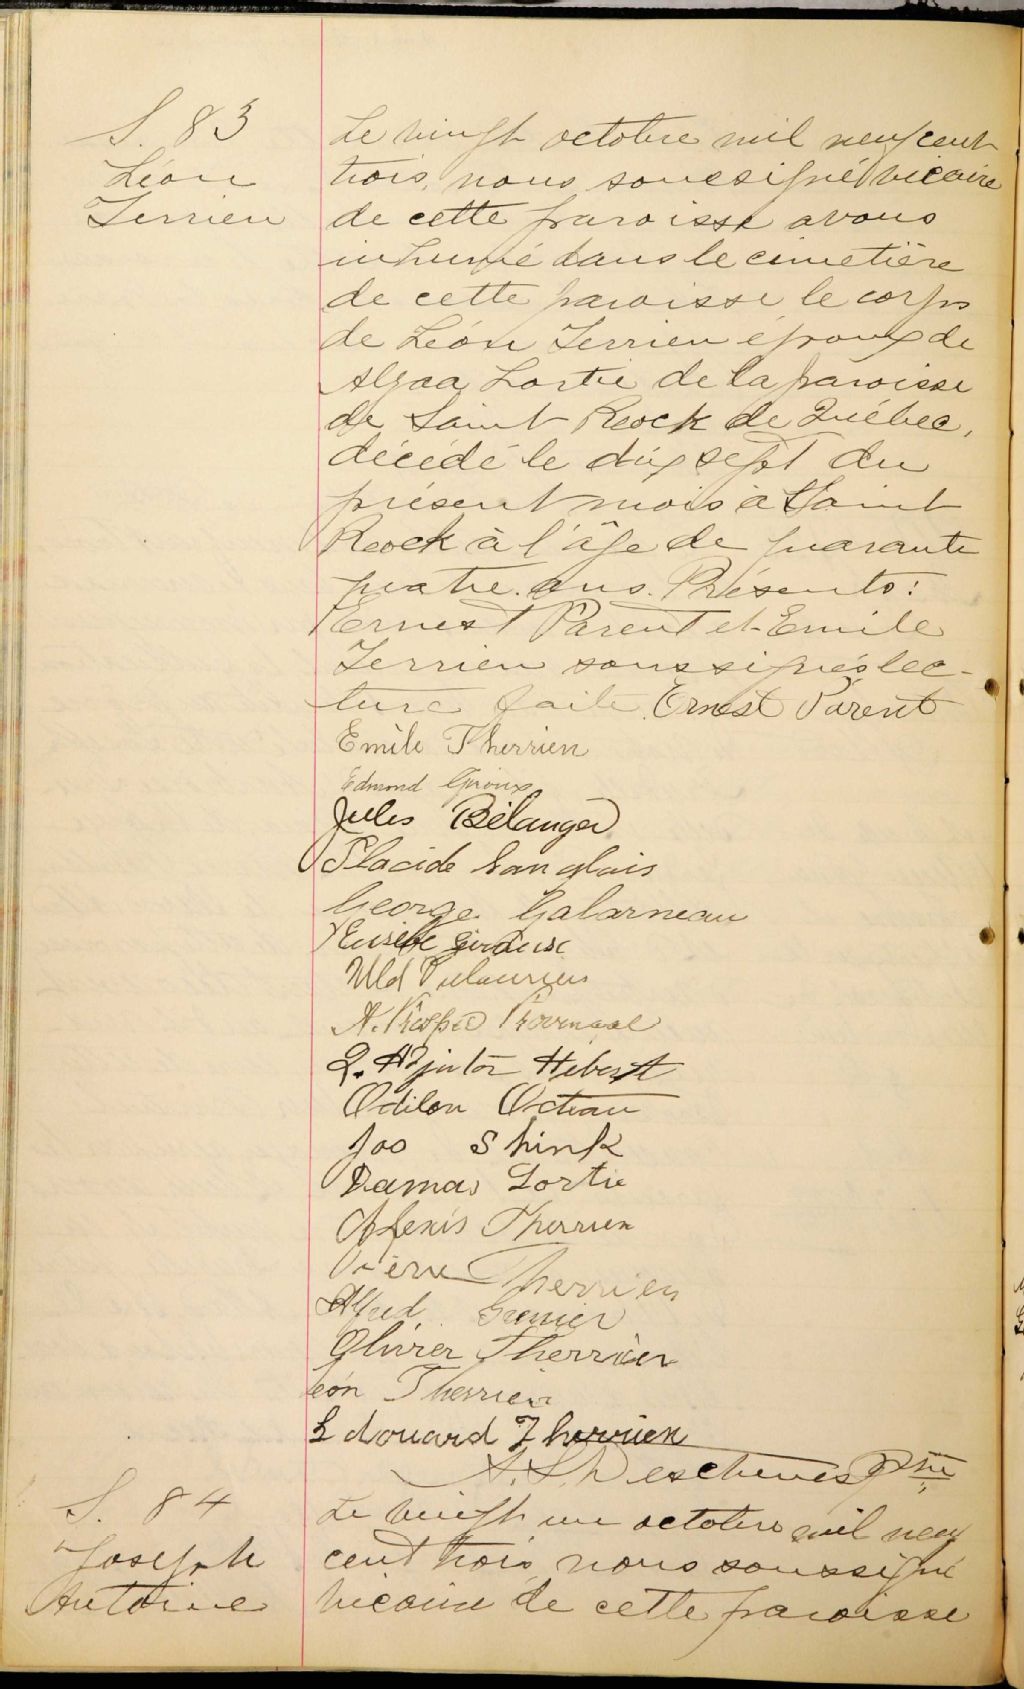 S. 83
Léon
Terrien
Le vingt octobre mil neuf cent
trois, nous soussigné vicaire
de cette paroisse avons
inhumé dans le cimetière
de cette paroisse le corps
de Léon Terrien époux de
Lortie de la paroisse
de Saint Rock de Québec,
décédé le dix sept du
présent mois à Saint
Rock à l'âge de quarante
quatre ans. Présents:
Ernest Parent et Emile
Terrien soussignés lec-
ture faite. Ernest Parent
Emile Therrien
Edmond Giroux
Jules Bélanger
Placide Langlois
George Galarneau
Eusèbe Giroux
A. Prosper Provençal
Hebert
Odilon
Joo Shink
Damas Lortie
Alexis Therrien
Pierre Therrien
Alfred Grenier
Olivier Therrien
Léon Therrien
Edouard Therrien
Deschenes Ptre
S. 84
Joseph
Antoine
Le vingt un octobre mil neuf
cent trois, nous soussigné
vicaire de cette paroisse